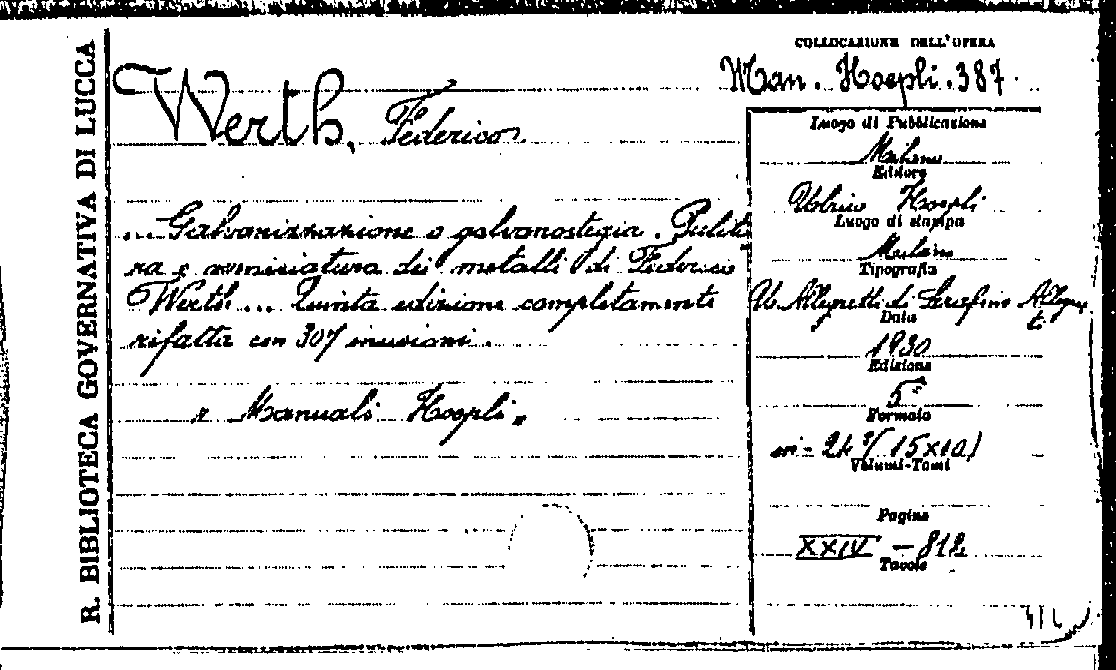 R. BIBLIOTECA GOVERNATIVA DI LUCCA
COLLOCAZIONE DELL'OPERA
Man. Hoepli. 387.
Werth, Federico
... Galvanizzazione e galvanostegia. Pulitu
ra e verniciatura dei metalli di Federico
Werth ... Quinta edizione completamente
rifatta con 307 incisioni.
" Manuali Hoepli "
Luogo di Pubblicazione
Milano
Editore
Ulrico Hoepli
Luogo di stampa
Milano
Tipografia
U. Allegretti di Serafino Allegret
t.
Data
1930
Edizione
5ª
Formato
in-24º (15x10)
Volumi-Tomi
Pagine
XXIV - 812
Tavole